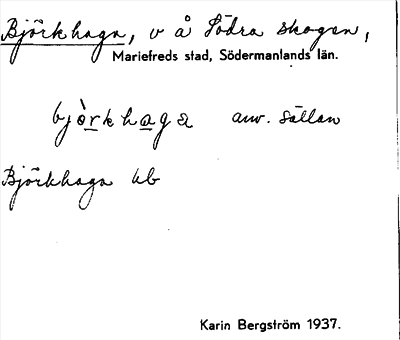 Björkhaga, v å Södra skogen,
Mariefreds stad, Södermanlands län.
bjö̀rkhaga anv. sällan
Björkhaga kb
Karin Bergström 1937.